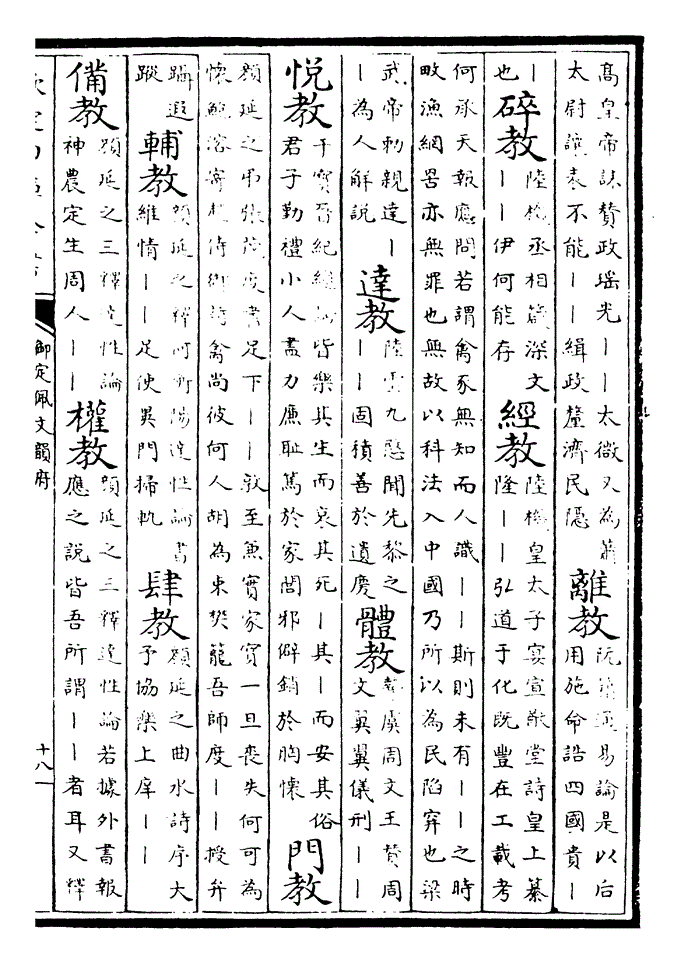 髙皇帝誄贊政瑶光丨丨太微又為蕭
太尉讓表不能丨丨緝政釐濟民隱
離教
阮籍通易論是以后
用施命誥四國貴丨
丨
也
碎教
陸機丞相箴深文
丨丨伊何能存
經教
陸機皇太子宴宣猷堂詩皇上纂
隆丨丨弘道于化既豐在工載考
何承天報應問若謂禽豕無知而人識丨丨斯則未有丨丨之時
畋漁網罟亦無罪也無故以科法入中國乃所以為民陷穽也梁
武帝勅親達丨
丨為人解說
達教
陸雲九愍聞先黎之
丨丨固積善於遺慶
體教
摯虞周文王贊周
文翼翼儀刑丨丨
悦教
干寳晉紀總論皆樂其生而哀其死丨其丨而安其俗
君子勤禮小人盡力廉耻篤於家閭邪僻銷於胸懷
門教
顔延之弔張茂度書足下丨丨敦至兼實家寳一旦喪失何可為
懷鮑溶寄趙侍御詩禽尚彼何人胡為束樊籠吾師度丨丨授弁
躡遐
蹤
輔教
顔延之釋何衡陽達性論書
維情丨丨足使異門掃軌
肆教
顔延之曲水詩序大
予協樂上庠丨丨
備教
顔延之三釋達性論
神農定生周人丨丨
權教
顔延之三釋達性論若據外書報
應之說皆吾所謂丨丨者耳又釋
欽定四庫全書
御定佩文韻府
十八